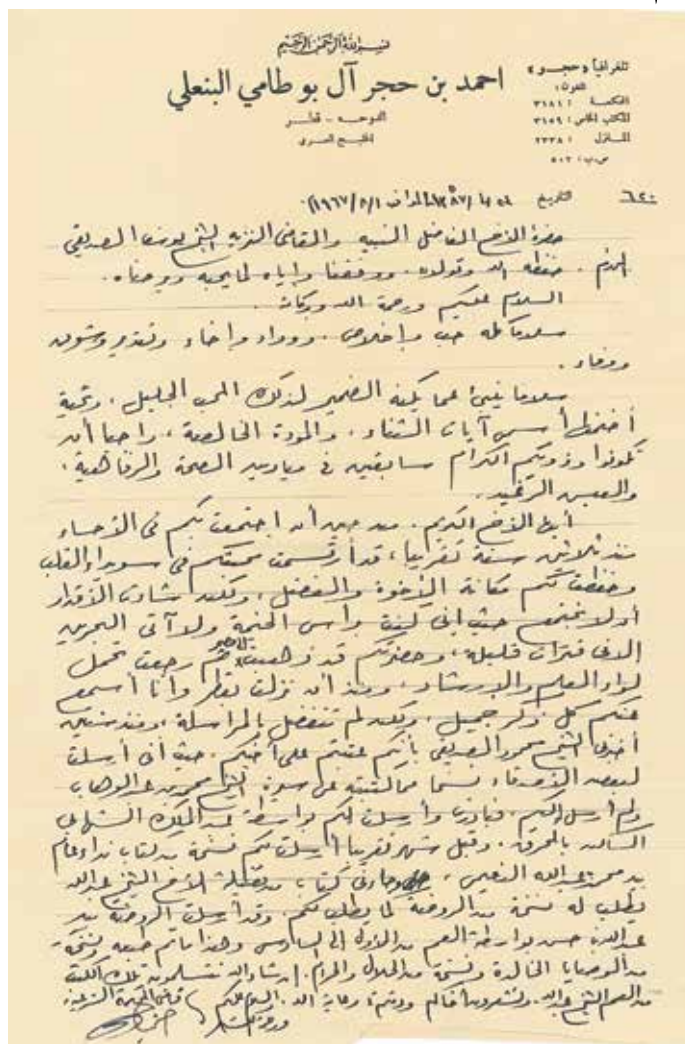 بسم الله الرحمن الرحيم
احمد بن حجر آل بو طامي البنعلي
الدوحة - قطر
الخليج العربي
تلغرافيا «حجر»
المحكمة : ٣١٨١
المكتب الخاص : ٣١٥٩
المنازل : ٢٢٣٨
ص.ب : ٥٠٢
التاريخ
حضرة الأخ الفاضل النبيه والقاضي النزيه الشيخ يوسف الصديقي
المحترم . حفظه الله وتولاه . ووفقنا وإياه لما يحبه ويرضاه .
السلام عليكم ورحمة الله وبركاته .
سلاما كله حب وإخلاص . ووداد وإخاء وتقدير
ووفاء .
سلاما ينبئ عما يكنه الضمير لذلك المحب الجليل . وتحية
آيات الثناء . والمودة الخالصة . راجيا أن
تكونوا وذويكم الكرام سابقين في ميادين الصحة والرفاهية .
والعيش الرغيد .
أيها الأخ الكريم . من حين أن اجتمعت بكم في الأحساء
منذ ثلاثين سنة تقريبا ، قد محبتكم في سويداء القلب
وحفظت لكم مكانة الأخوة والفضل . ولكن شاءت الأقدار
أن لا نجتمع حيث إني كنت برأس الخيمة ولا آتي البحرين
إلا في فترات قليلة . وحضرتكم قد ذهبتم ثم رجعت تحمل
لواء العلم والإرشاد . ومنذ أن نزلت بقطر وأنا أسمع
عنكم كل ذكر جميل . ولكن لم نتفضل بالمراسلة . ومنذ سنتين
أخبرني الشيخ محمود الصديقي بأنكم عتبتم على أخيكم . حيث أني أرسلت
لبعض الأصدقاء نسخا مما كتبته عن سيرة الشيخ محمد بن عبد الوهاب
ولم أرسل إليكم . فبادرت وأرسلت لكم بواسطة عبد الملك
الساكن بالمحرق . وقبل شهر تقريبا أرسلت لكم نسخة من كتاب
بيد محمد بن عبد الله النعيمي . وجاءني كتاب من فضيلة الأخ الشيخ عبد الله
يطلب له نسخة من الروضة كما يطلب لكم . وقد أرسلت الروضة بيد
عبد الله بن حسن بواسطة العم من الأول إلى السادس وهذا ما تم طبعه ونسخة
من الوصايا الخالدة ونسخة من الحلال والحرام . إن شاء الله تستلمون تلك الكتب
من العم الشيخ عبد الله . ودمتم رعاية الله . السلام عليكم قاضي المحكمة الشرعية
ورحمة الله